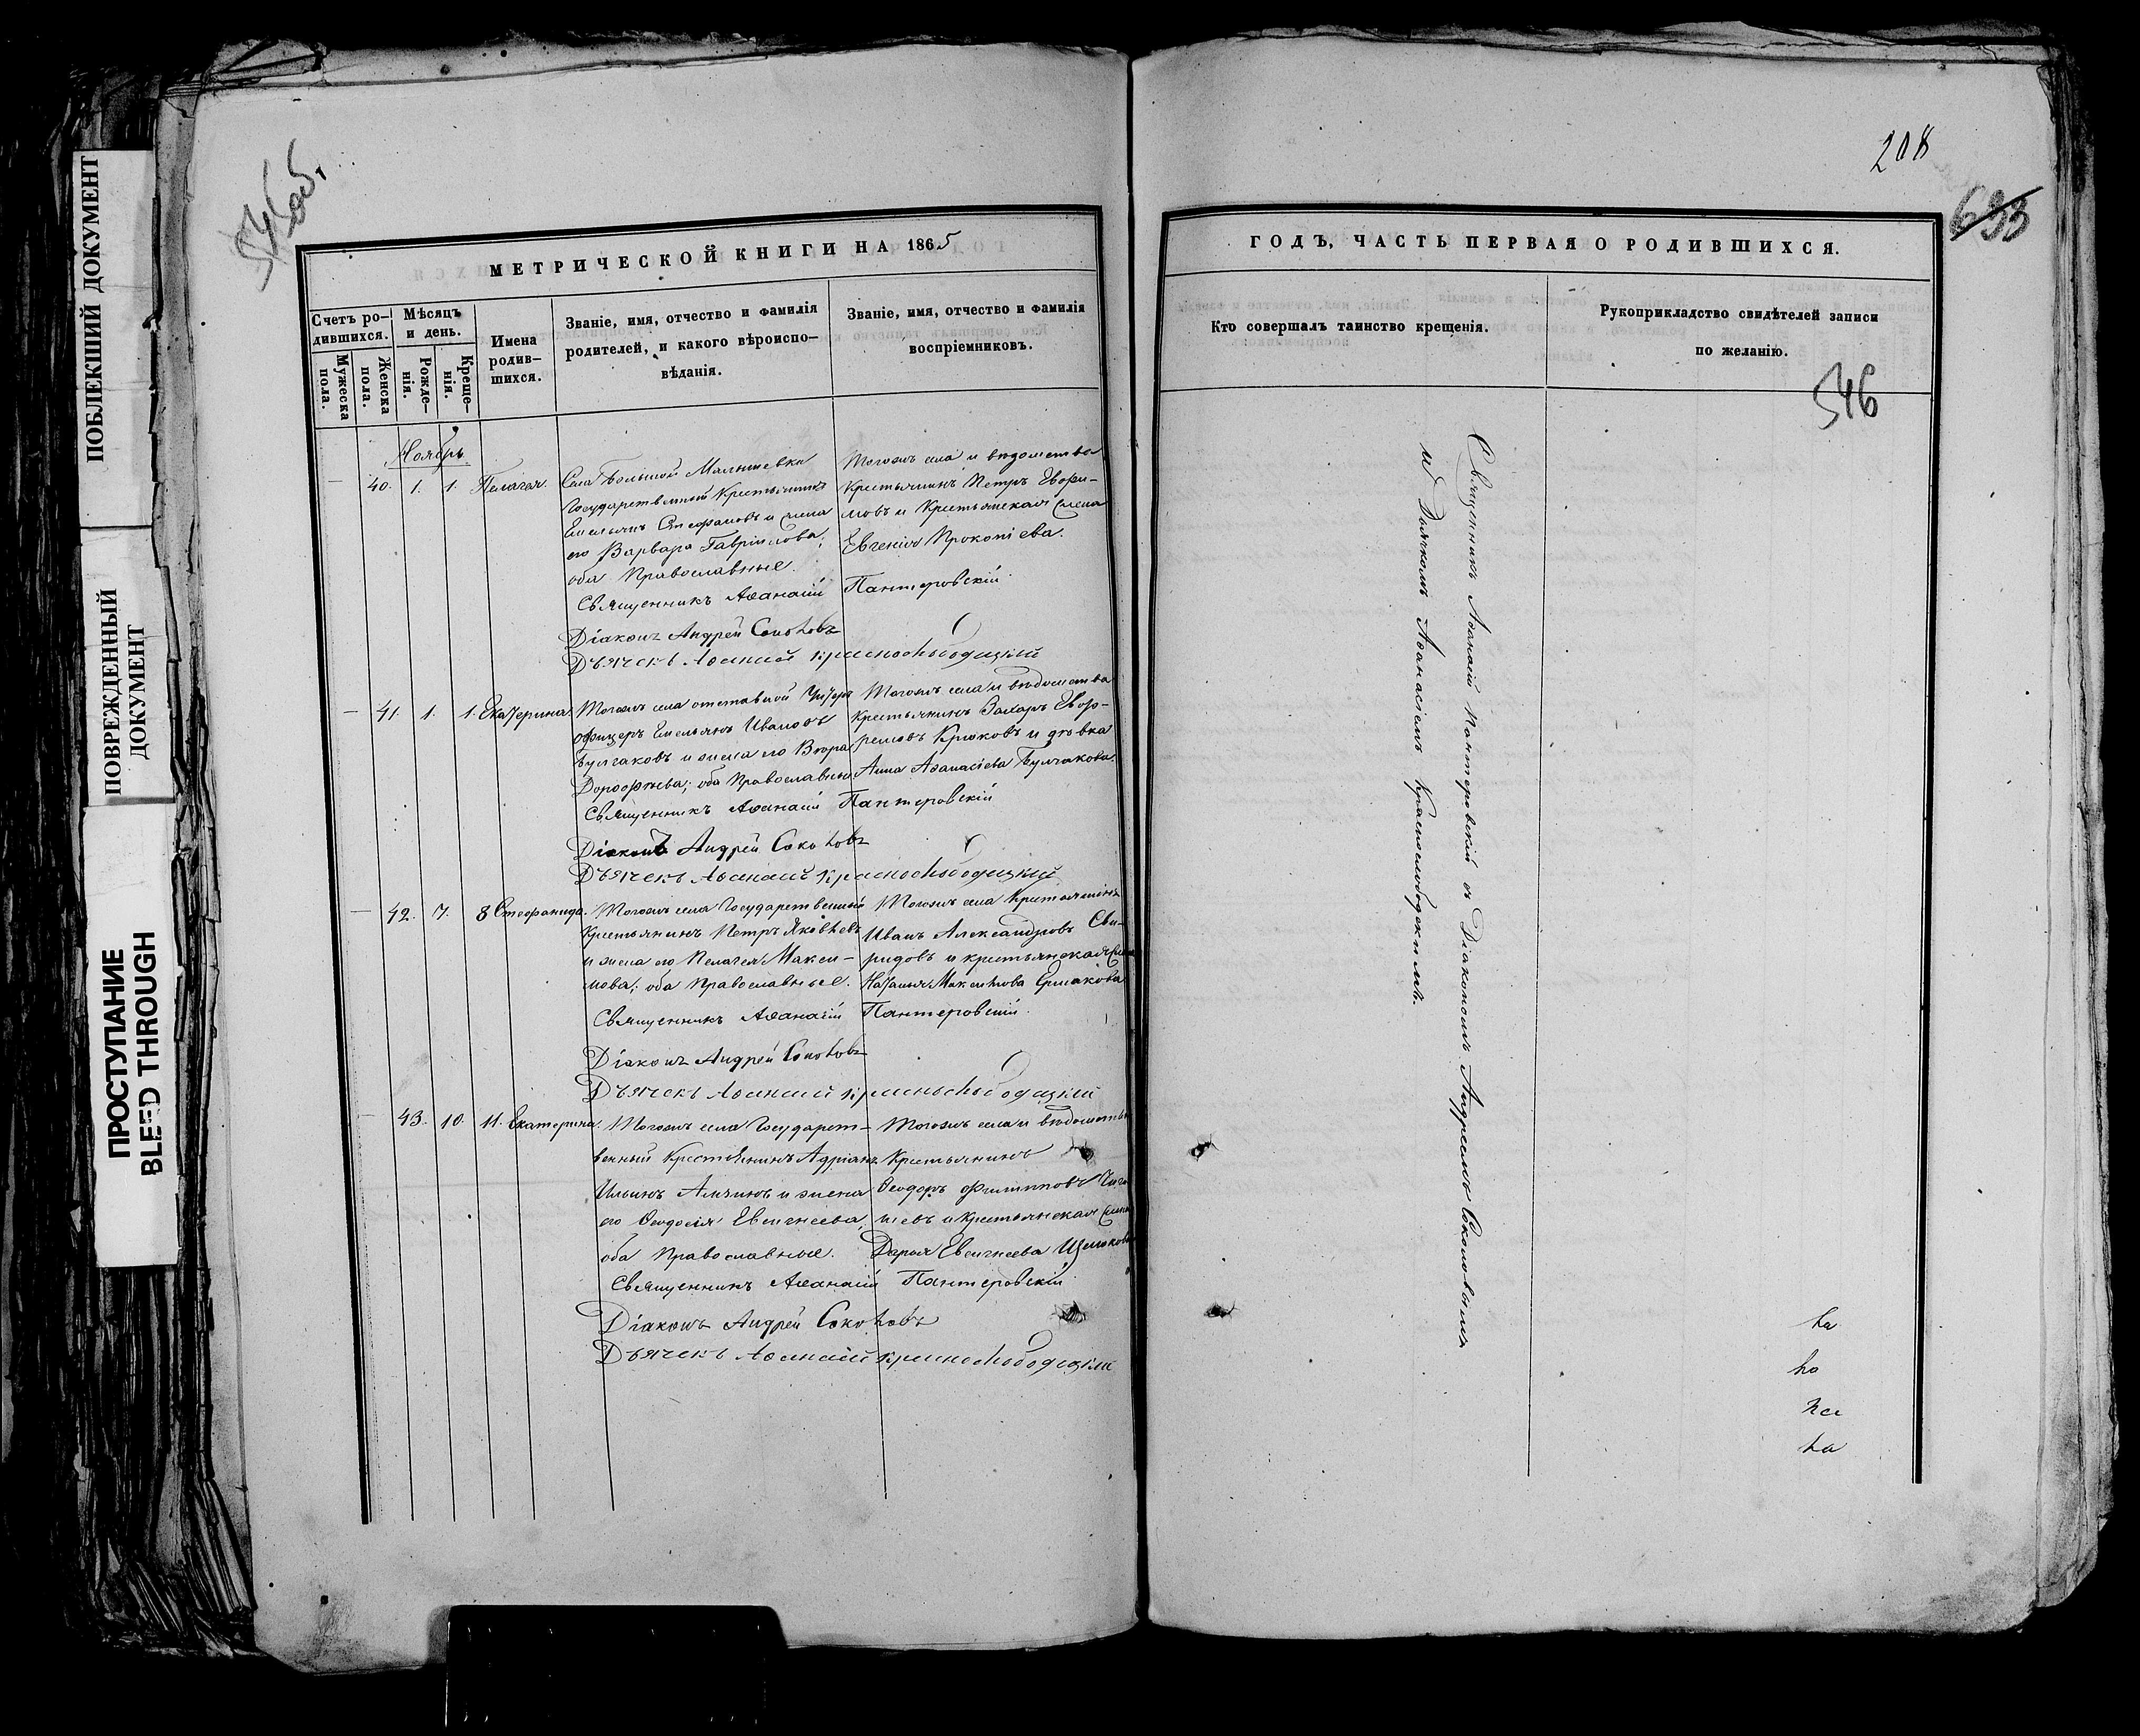 ПОБЛЕКШИЙ ДОКУМЕНТ
ПОВРЕЖДЕННЫЙ
ДОКУМЕНТ
ПРОСТУПАНИЕ
BLEED THROUGH
546 об.
МЕТРИЧЕСКОЙ КНИГИ НА 1865
Счетъ ро-
дившихся.
Мужеска
пола.
Женска
пола.
Мѣсяцъ
и день.
Рожде-
нія.
Креще-
нія.
Имена
родив-
шихся.
Званіе, имя, отчество и фамилія
родителей, и какого вѣроиспо-
вѣданія.
Званіе, имя, отчество и фамилія
воспріемниковъ.
Ноябрь
— 40. 1. 1. Пелагея.
Села Большой Малышевки
Государственный Крестьянинъ
Емельянъ Стефановъ и жена
его Варвара Гаврилова;
оба Православные.
Тогожъ села и вѣдомства
Крестьянинъ Петръ Ефи-
мовъ и Крестьянская жена
Евгенія Прокопіева.
Священникъ Аѳанасій Пантеровскій.
Діаконъ Андрей Соколовъ
Дьячекъ Аѳанасій Краснослободцкій
— 41. 1. 1. Екатерина.
Тогожъ села отставной Унтеръ
офицеръ Емельянъ Ивановъ
Булгаковъ и жена его Вѣра
Дорофѣева; оба Православные
Тогожъ села и вѣдомства
Крестьянинъ Захаръ Ефр-
емовъ Крюковъ и дѣвка
Анна Аѳанасіева Булгакова.
Священникъ Аѳанасій Пантеровскій
Діаконъ Андрей Соколовъ
Дьячекъ Аѳанасій Краснослободцкій
— 42. 7. 8 Стефанида.
Тогожъ села Государственный
Крестьянинъ Петръ Яковлевъ
и жена его Пелагея Макси-
мова; оба Православные.
Тогожъ села Крестьянинъ
Иванъ Александровъ Сви-
ридовъ и крестьянская жена
Наталья Максимова Ермакова
Священникъ Аѳанасій Пантеровскій.
Діаконъ Андрей Соколовъ
Дьячекъ Аѳанасій Краснослободцкій
— 43. 10. 11. Екатерина.
Тогожъ села Государст-
венный Крестьянинъ Адріанъ
Ильинъ и жена
его Ѳеодосія Евсигнеева,
оба Православные.
Тогожъ села и вѣдомства
Крестьянинъ
Ѳеодоръ Филипповъ
и крестьянская жена
Дарья Евсигнеева
Священникъ Аѳанасій Пантеровскій.
Діаконъ Андрей Соколовъ
Дьячекъ Аѳанасій Краснослободцкій
208
693
ГОДЪ, ЧАСТЬ ПЕРВАЯ О РОДИВШИХСЯ.
Кто совершалъ таинство крещенія.
Рукоприкладство свидѣтелей записи
по желанію.
546
Священникъ Аѳанасій Пантеровскій съ Діакономъ Андреемъ Соколовымъ
и Дьячкомъ Аѳанасіемъ Краснослободскимъ.